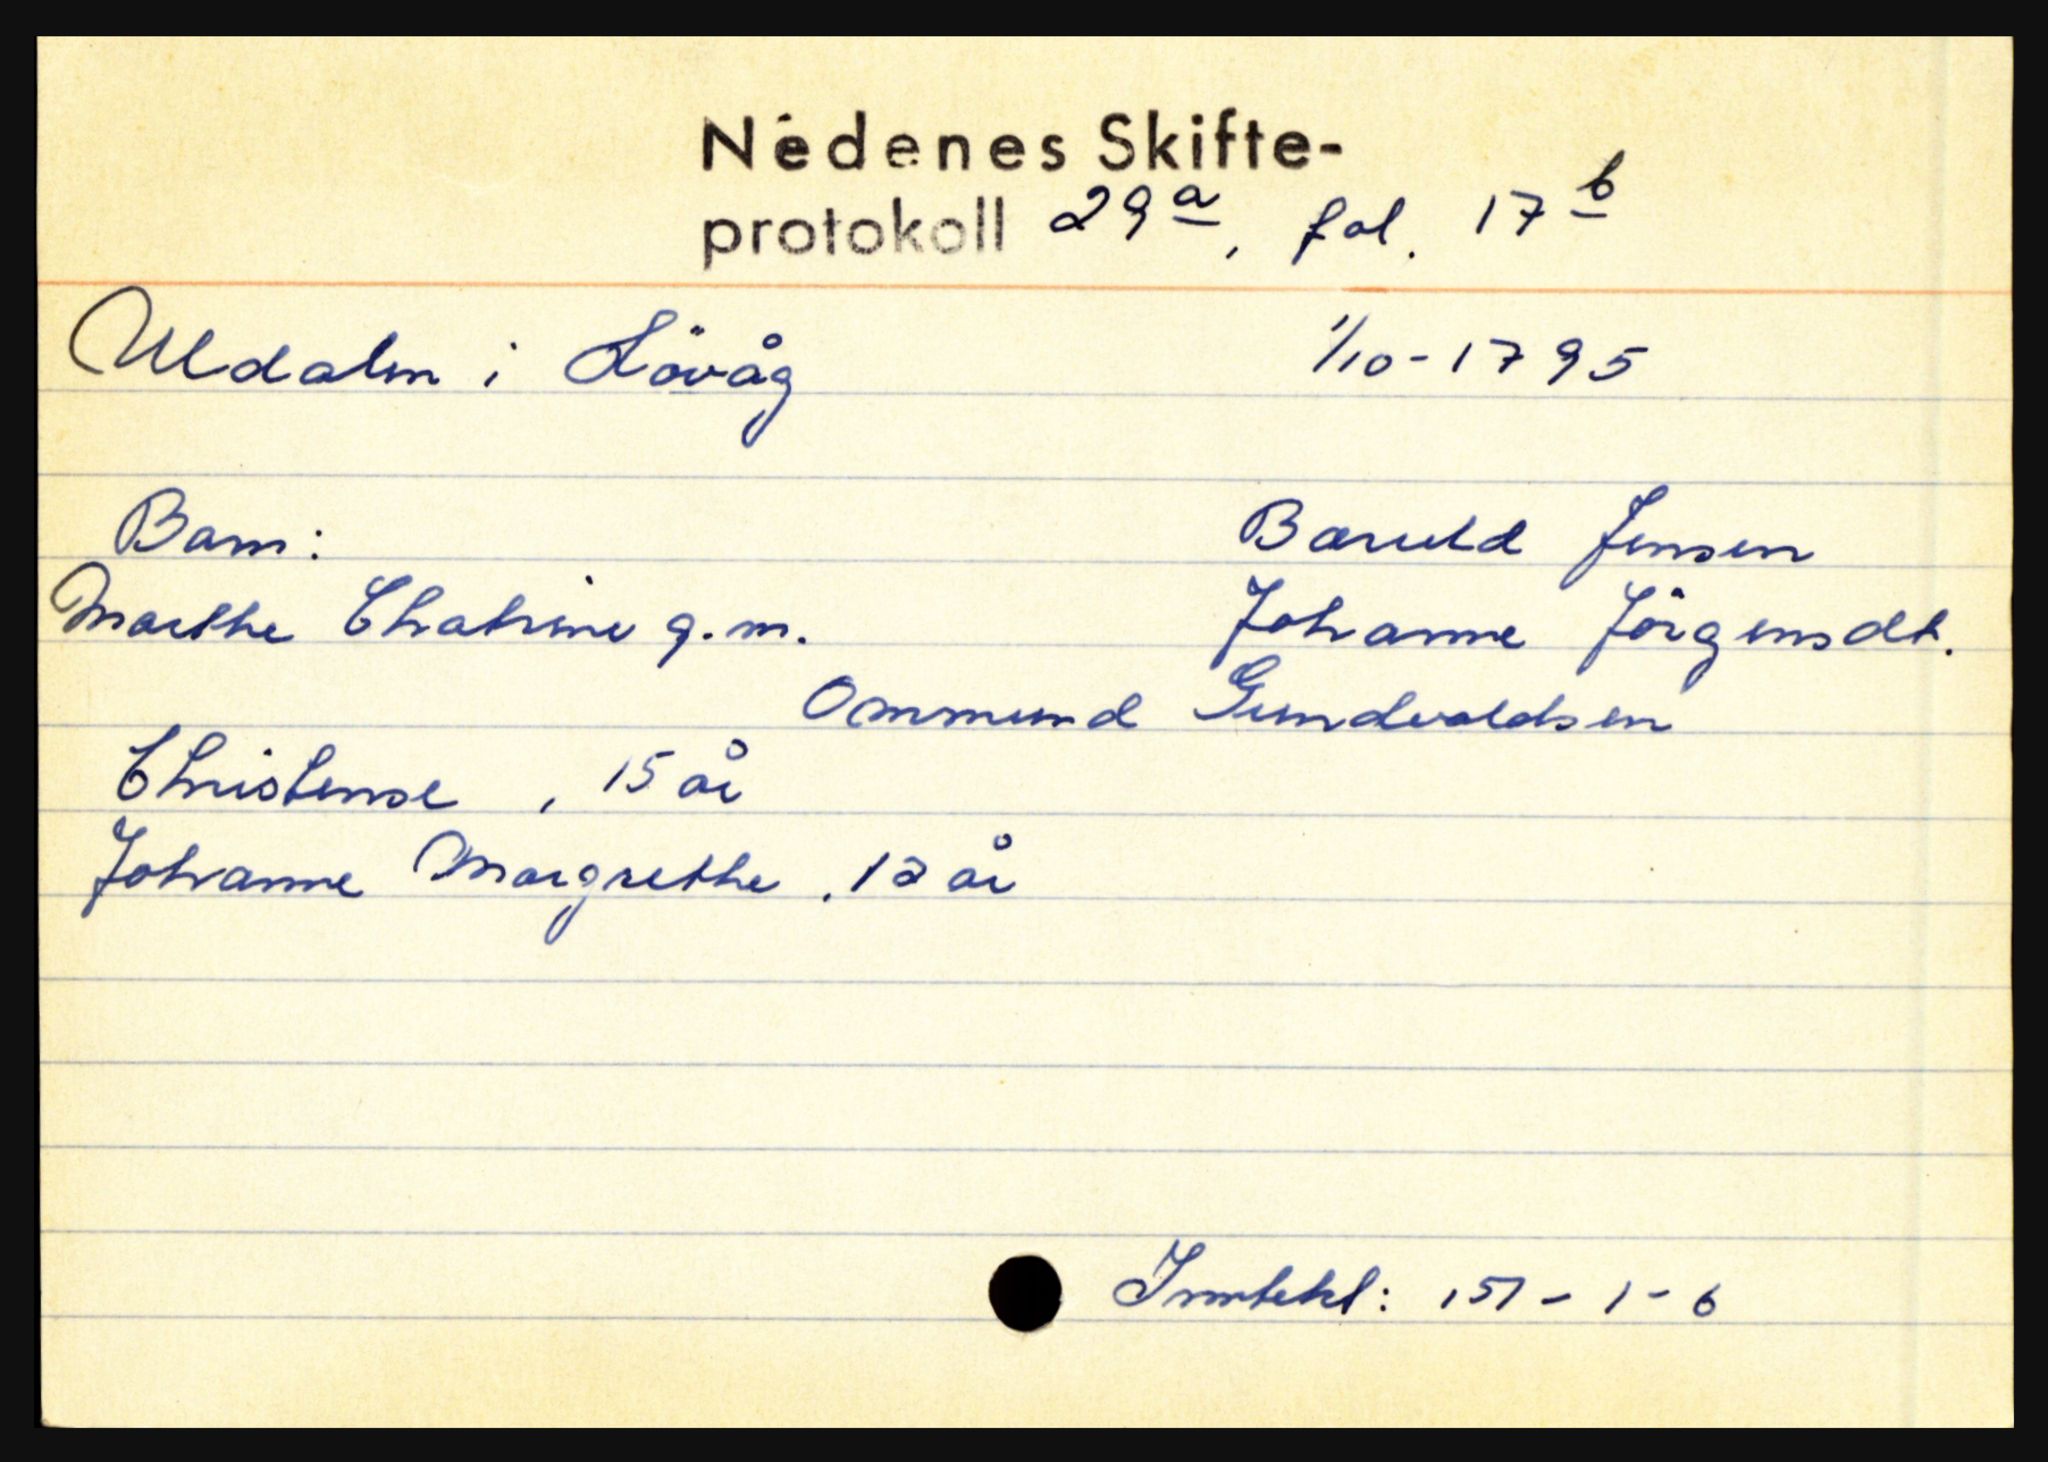 Nedenes Skifte-
protokoll 29a, fol. 17b
Uldalen i Hövåg 1/10-1795
Barn: Baruld Jensen
Marthe Chatrine g.m. Johanne Jörgensdt.
Ommund Gundvaldsen
Christense, 15 år
Johanne Margrethe. 12 år
Inntekt: 151-1-6